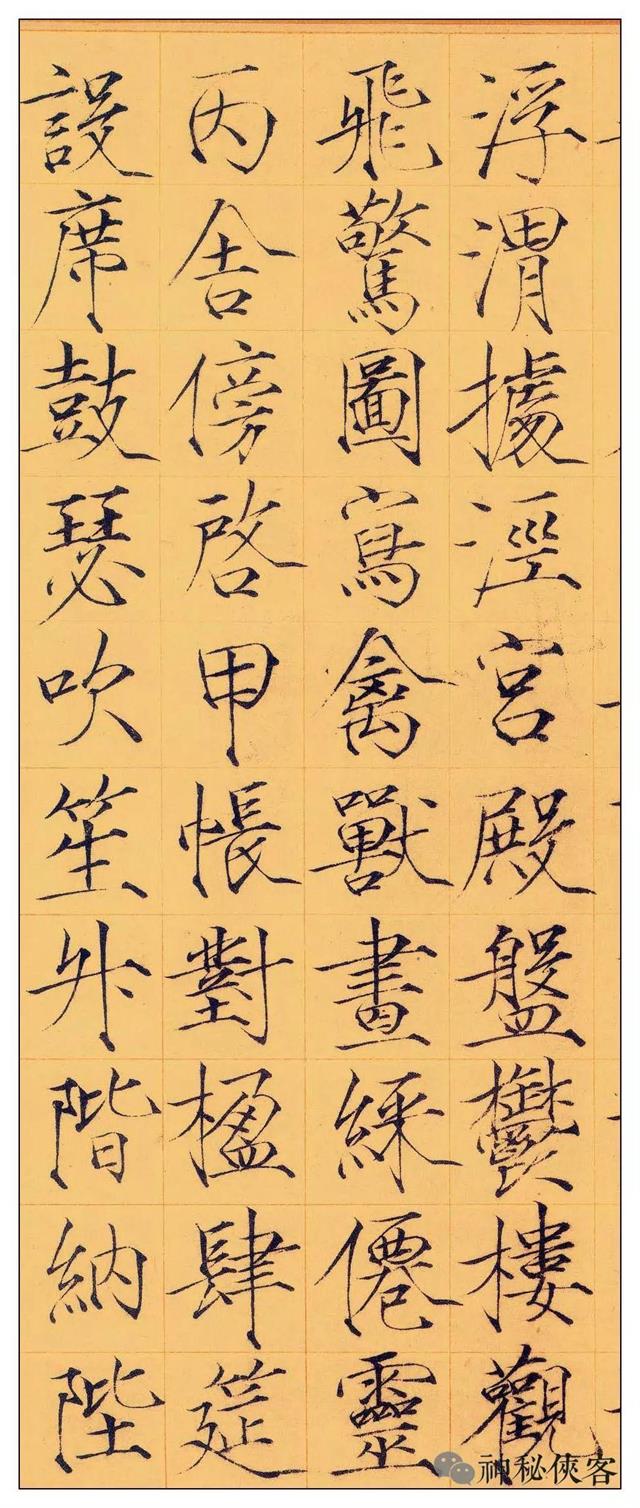 浮渭據涇宮殿盤鬱樓觀
飛驚圖寫禽獸畫綵僊靈
丙舍傍啓甲帳對楹肆筵
設席鼓瑟吹笙升階納陛
神秘俠客